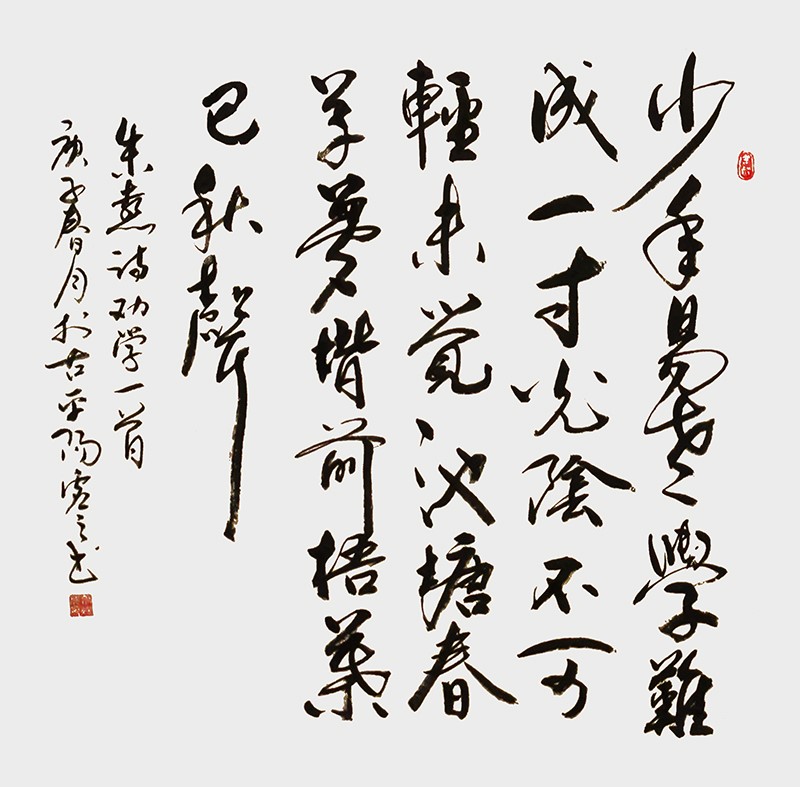 少年易老學難
成一寸光陰不可
輕未觉池塘春
草夢堦前梧葉
已秋聲
朱熹诗劝学一首
庚子春月於古平阳虚之书